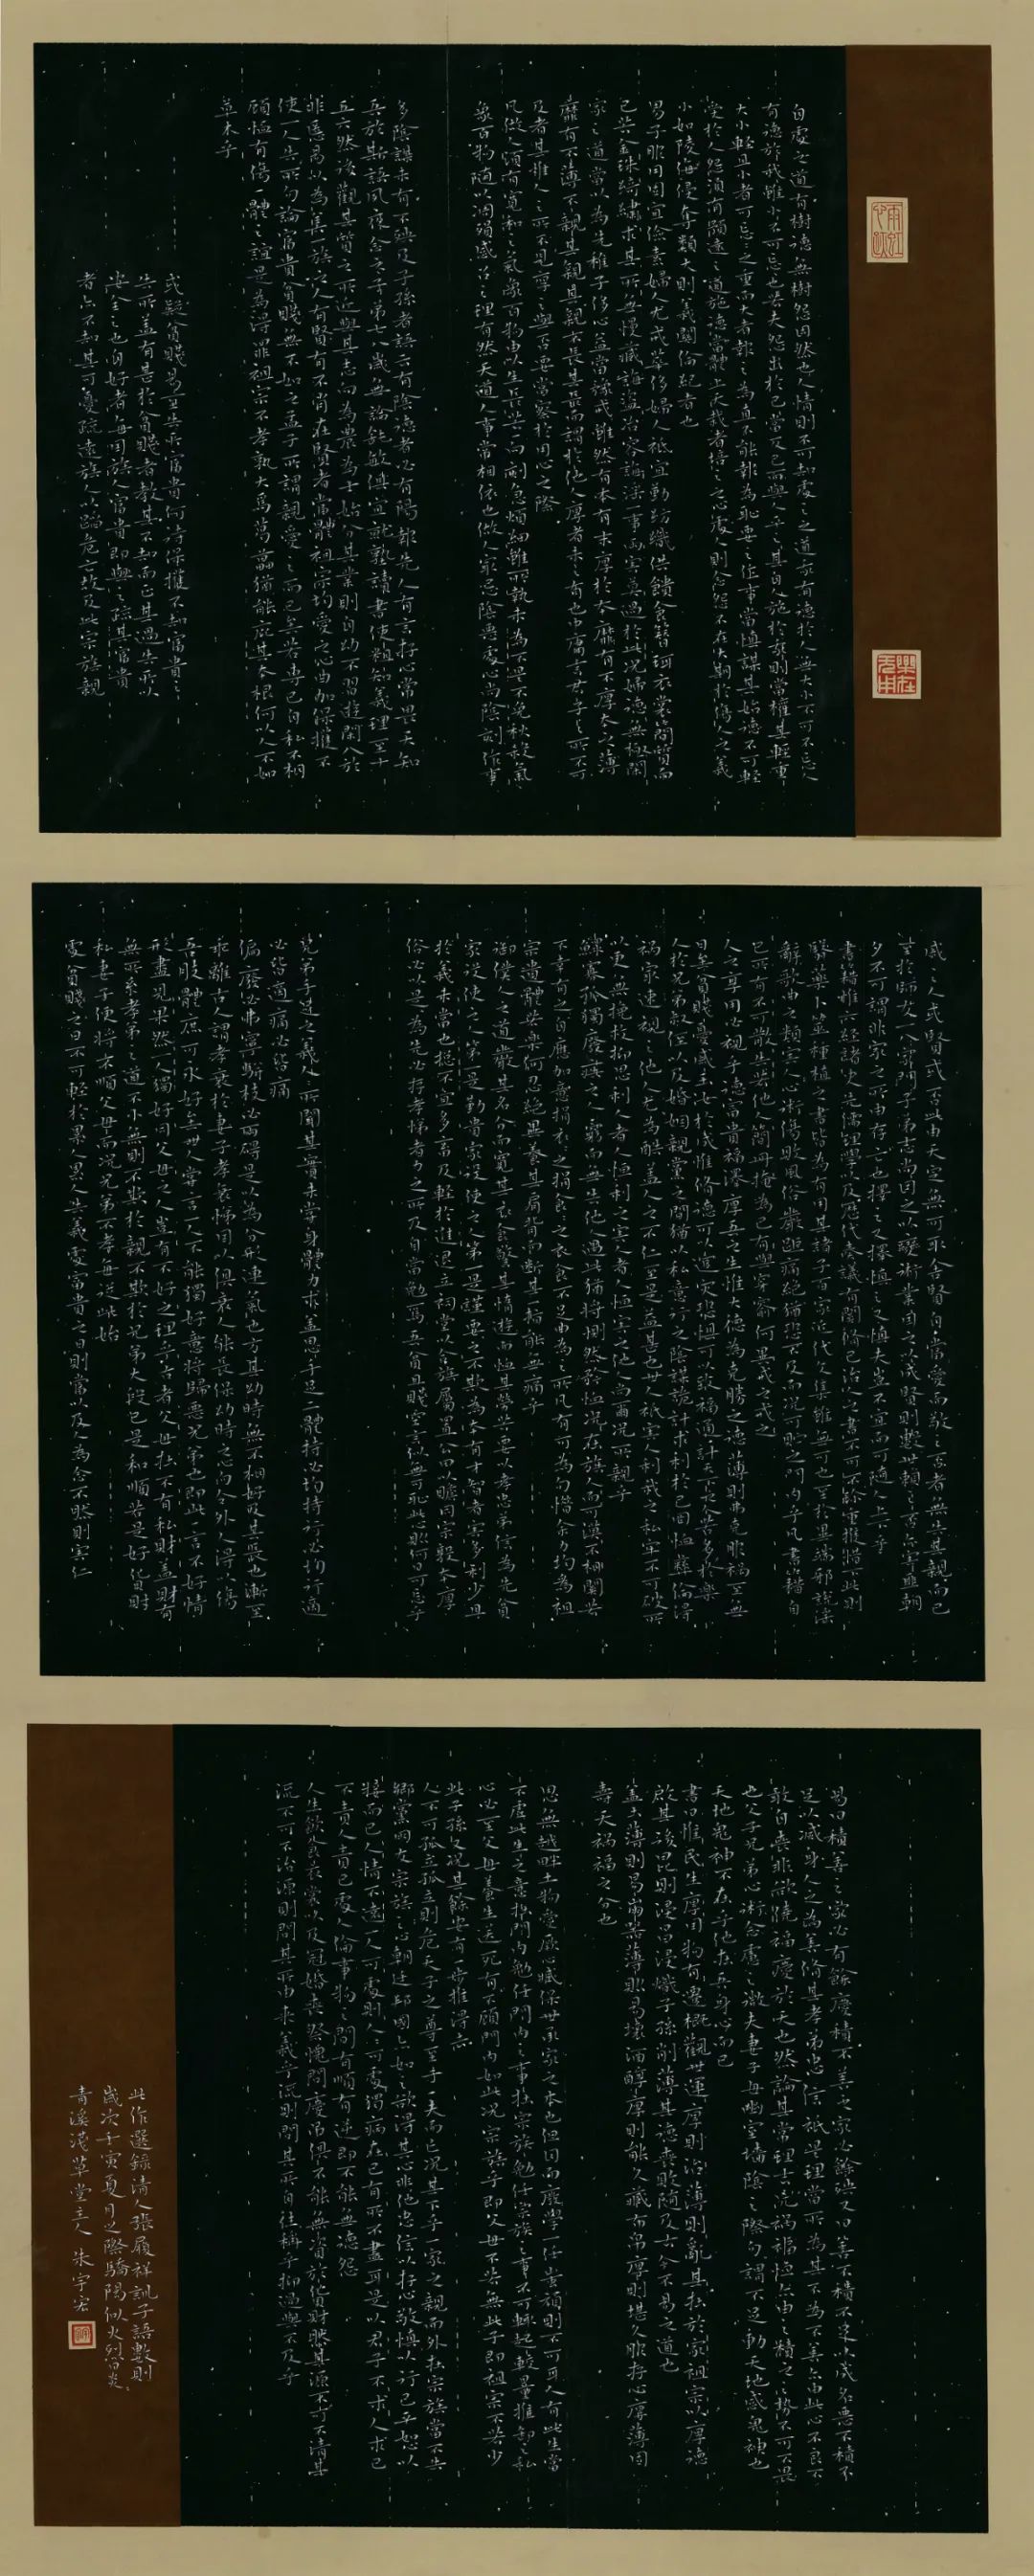 自處之道有樹德無樹怨固然也人情則不可知處之之道亦有德於人無大小不可不忘人
有德於我雖小不可忘也若夫怨出於己當反己而與人平之其自人施於我則當權其輕重
大小輕且小者可忘之重而大者報之為直不能報為恥要之作事當慎謀其始德不可輕
受於人怨須有潤遠之道施德當體上天栽者培之之心處人則念怨不在大期於傷人之義
小如陵侮侵奪類大則義關倫紀者也
男子服用固宜儉素婦人尤戒華侈婦人祇宜勤紡織供饋食簪珥衣裳簡質而
已若金珠綺繡求其所無慢藏誨盜冶容誨淫一事兩害莫過於此況婦德無極閑
家之道當以為先稚子侈心益當豫戒雖然有本有末厚於本靡有不厚本之薄
靡有不薄不親其親其親亦長其長而謂於他人厚者未之有也中庸言君子之所不可
及者其惟人之所不見乎與否要當察於用心之際
凡做人須有寬和之氣象百物由以生長些而刻急煩細雖所執未為不是不免秋殺氣
象百物隨以凋殞感召之理有然天道人事常相依也做人最忌陰惡處心尚陰刻作事
多陰謀未有不殃及子孫者語云有陰德者必有陽報先人有言存心常畏天知
吾於斯語夙夜念之子弟七八歲無論敏鈍俱宜就塾讀書使粗知義理至十
五六然後觀其質之所近與其志向為農為士始分其業則自幼不習遊閑入於
非慝易以為善一族之人有賢有不肖在賢者當體祖宗均愛之心曲加保護不
使一人失所勿論富貴貧賤無不如之孟子所謂親愛之而已矣若專已自私不相
顧恤有傷一體之誼是為得罪祖宗不孝孰大焉葛藟猶能庇其本根何以人不如
草木乎
民疑貧賤易至失所富貴何待保護不知富貴之
失所蓋有甚於貧賤者教其不知而正其過失所以
安全之也自好者每因族人富貴即與之疏其富貴
者亦不知其可憂疏遠族人臨危亡故及此宗族親
戚之人或賢或否此由天定無可取舍賢自當愛而敬之否者無失其親而已
至於師友一入家門子弟志尚因之以變術業因之以成賢則數世賴之否亦害無朝
夕不可謂非家之所由存亡也擇之又擇慎之又慎夫豈不宜而可隨人上下乎
書籍惟六經諸史先儒理學以及歷代奏議有關修己治人之書不可不珍重護惜下此則
醫藥卜筮種植之書皆為有用其諸子百家近代文集雖無可也至於異端邪說淫
辭歌曲之類害人心術傷敗風俗嚴距痛絕猶恐不及而況可貯之門內乎凡書籍自
己所有不可散失若他人簡冊掩為己有與穿窬何異戒之戒之
人之享用必視乎德富貴福澤厚吾之生惟大德為克勝之德薄則弗克勝禍至無
日矣貧賤憂戚玉汝於成惟修德可以進突恐懼可以致福通計天下失苦多於樂
人於兄弟叔侄以及婚姻親黨之間猶以私意行之陰謀詭計求利於己罔恤彝倫得
禍家速視之他人尤為酷蓋人之不仁至是益甚也世人祇害人利我之私牢不可破所
以更無挽救抑思利人者人恒利之害人者人恒害之他人尚爾況所親乎
鰥寡孤獨廢疾之人窮而無告他人遇此猶將惻然矜恤況在族人而可漠不相關若
不幸有之自應加意損衣之損食之衣食不足曲為之所凡有可為勿惜余力均為祖
宗遺體安樂何忍絕異養其肩背而斷其指能無痛乎
御僕人之道嚴其名分而寬其衣食警其惰遊而恤其勞苦要以孝忠弟信為先貧
家役使之人第一是勤貴家役使之人第一是謹要之不欺為本有才智者害多利少且
於義未當也總不宜多畜及輕於進退立祠堂以合族屬置公田以贍同宗毅本厚
俗必以是為先必存孝悌者力之所及自當勉焉吾貧且賤空言似無可恥此心豈何日可忘乎
兄弟手足之義人人所聞其實未嘗身體力求蓋思手足二體持必均持行必均行適
必皆適痛必皆痛
偏廢必弗寧斷枝必兩碍是以為分形連氣也方其幼時無不相好及其長也漸至
乖離古人謂孝衰於妻子孝衰悌因以俱衰人能長保幼時之心向令外人得以傷
吾肢體庶可永好矣世人率言一人不能獨好意將歸惡兄弟也即此一言不好情
形盡見果然一人獨好固父母之人豈有不好之理乎古者父母在不有私財蓋財有
無所系孝弟之道不小無則不欺於親不欺於兄弟大段已是和順若是好貨財
私妻子便將不順父母而況兄弟不孝每從此始
處貧賤之日不可輕於累人累人失義處富貴之日則當以及人為念不然則害仁
易曰積善之家必有餘慶積不善之家必餘殃又曰善不積不足以成名惡不積不
足以滅身人之為善修其孝弟忠信祇是理當所為其不為不善亦由此心不良不
敢自喪非欲徼福慶於天也然論其常理吉凶禍福恒亦由之積之之勢不可不畏
也父子兄弟心術念慮之微夫妻子母幽室牆陰之際勿謂不足動天地感鬼神也
天地鬼神不在乎他在吾身心而已
書曰惟民生厚因物有遷概觀世運厚則治薄則亂其在於家祖宗以厚德
啟其後昆則浸昌浸熾子孫削薄其德喪敗隨及古今不易之道也
蓋之薄則易崩器薄則易壞酒醇厚則能久藏布帛厚則堪久服存心厚薄固
壽夭禍福之分也
思無越畔土物愛厥心臧保世承家之本也但因而廢學一任蚩頑則不可耳人有此生當
不虛此生之意在門內勉任門內之事在宗族勉任宗族之事不可輒起較量推卸之私
心必至父母養生送死有不顧門內如此況宗族乎即父母不若無此子即祖宗不若少
此子孫又況其餘安有一步推得亦
人不可孤立孤立則危天子之尊至于一夫而亡況其下乎一家之親而外在宗族當不失
鄉黨朋友宗族之心朝廷邦國亦如之欲得其心非他忠信以存心敬慎以行己平恕以
接而已人情不遠一人可處則人人可處獨病在己有所不盡耳是以君子不求人求己
不責人責己處人倫事物之間有順有逆即不能無德怨
人生飲食衣裳以及冠婚喪祭饋問慶弔俱不能無資於貨財然其源不可不清其
流不可不治源則問其所由來義乎流則問其所自往稱乎抑過與不及乎
此作選錄清人張履祥訓子語數則
歲次壬寅夏月之際驕陽似火烈日炎炎
青溪淺草堂主人 朱宇宏